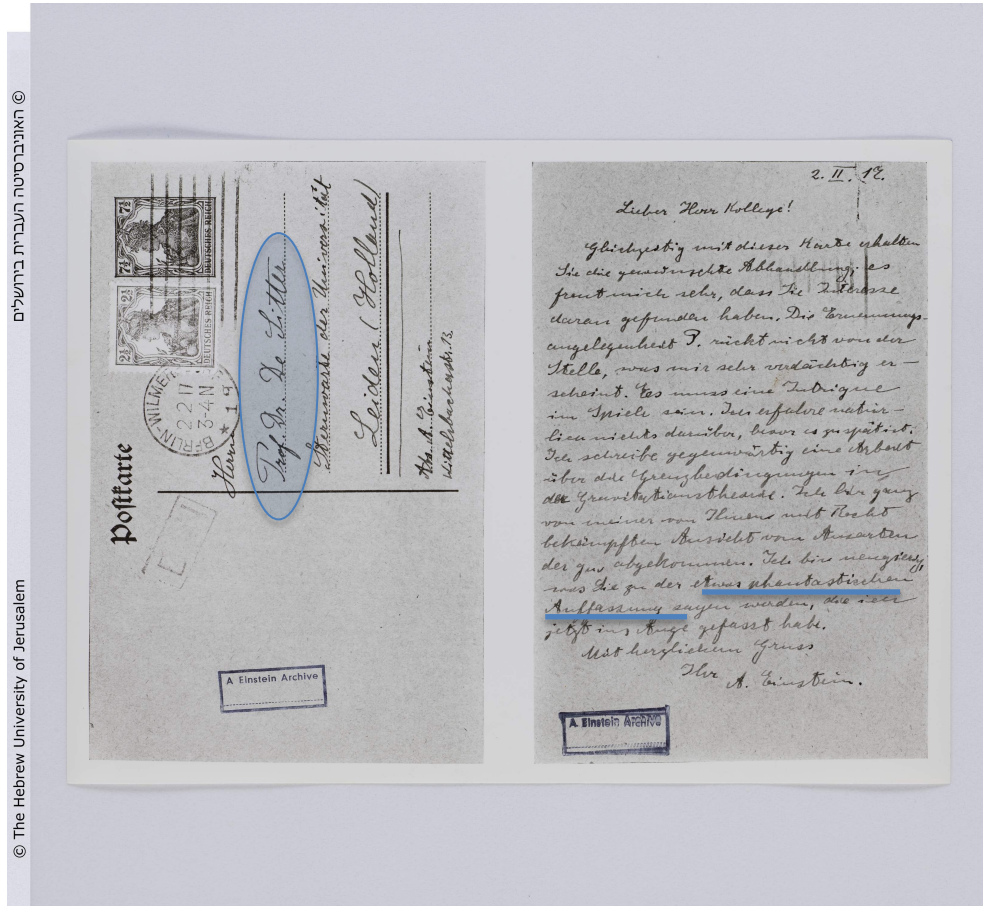 © האוניברסיטה העברית בירושלים
© The Hebrew University of Jerusalem
Postkarte
7½ 7½
DEUTSCHES REICH
2½ 2½
DEUTSCHES REICH
BERLIN-WILMER
2.2.17
3-4 N
Herrn
Prof. Dr. De Sitter
Sternwarte der Universität
Leiden (Holland)
Abs. A. Einstein
Wittelsbacherstr. 13.
A Einstein Archive
2. II. 17.
Lieber Herr Kollege!
Gleichzeitig mit dieser Karte erhalten
Sie die gewünschte Abhandlung; es
freut mich sehr, dass Sie Interesse
daran gefunden haben. Die Ernennungs-
angelegenheit P. rückt nicht von der
Stelle, was mir sehr verdächtig er-
scheint. Es muss eine Intrigue
im Spiele sein. Ich erfahre natür-
lich nichts darüber, bevor es zu spät ist.
Ich schreibe gegenwärtig eine Arbeit
über die Grenzbedingungen in
der Gravitationstheorie. Ich bin ganz
von meiner von Ihnen mit Recht
bekämpften Ansicht vom Ausarten
der gμν abgekommen. Ich bin neugierig,
was Sie zu der etwas phantastischen
Auffassung sagen werden, die ich
jetzt ins Auge gefasst habe.
Mit herzlichem Gruss
Ihr
A. Einstein.
A. Einstein Archive